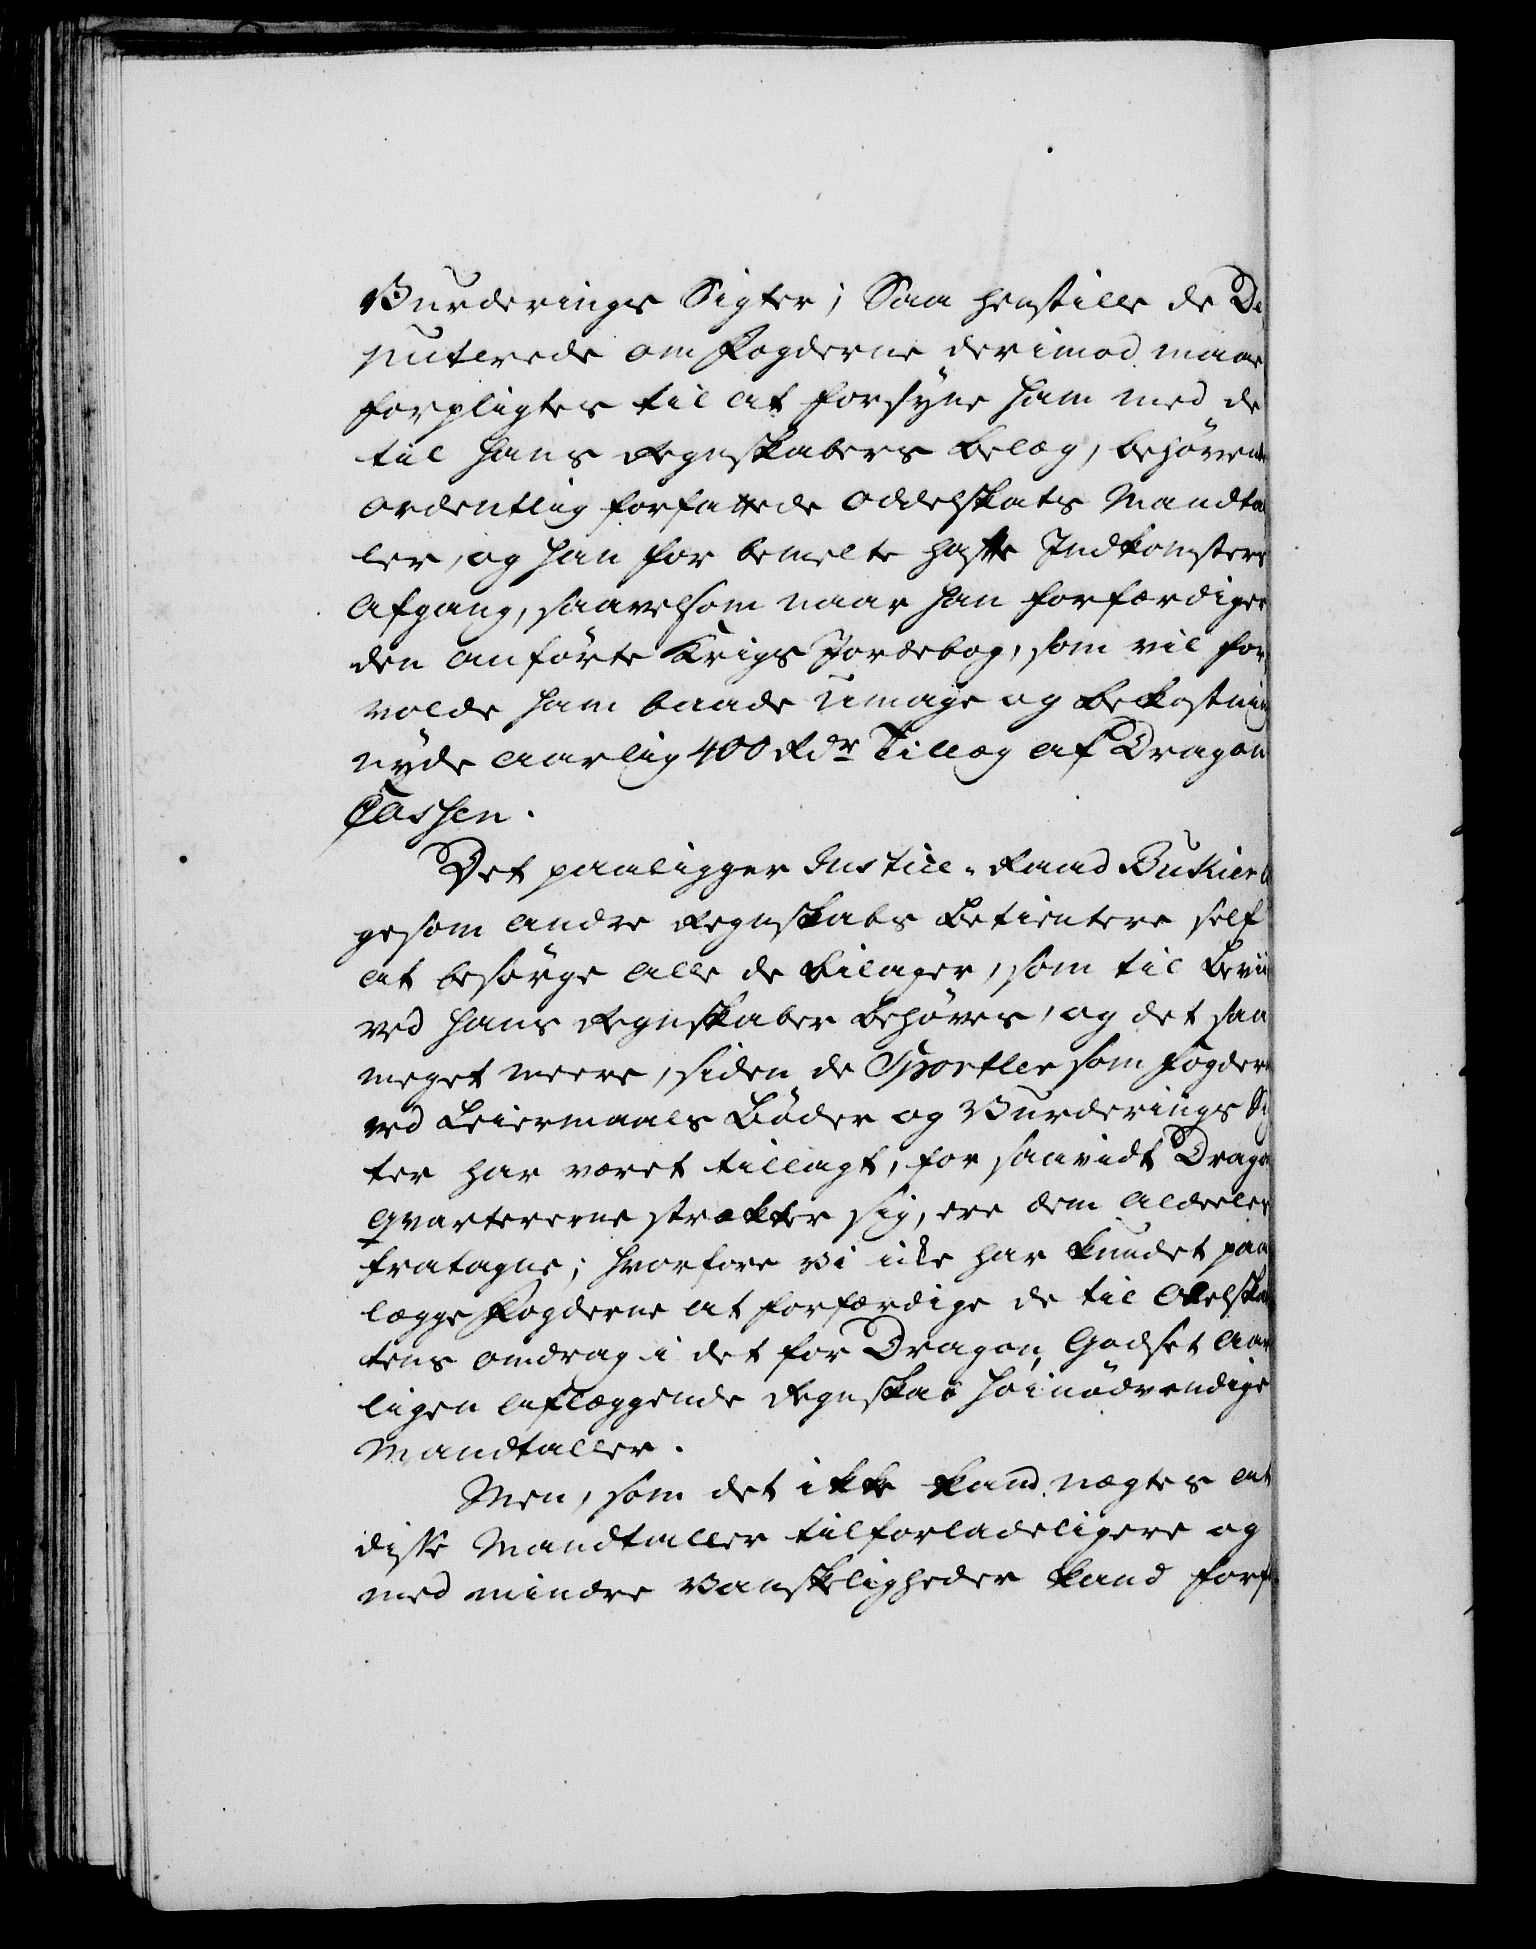 Vurderings Sigter; Saa henstille de De,
puterede om Fogderne derimod maae
forpligtes til at forsyne ham med de
til hans Regnskabers Belæg, behøvende
ordentlig forfattede Oddelskats Mandta
ler, og han for bemelte hafte Indkomsters
Afgang, saavelsom naar han forfærdiger
den anførte Krigs Jordebog, som vil for,
volde ham baade Umage og Bekostning
nyde aarlig 400 Rdr Tillæg af Dragon
Cassen.
Det paaligger Justice-Raad Bukier li
gesom andre Regnskabs Betientere self
at besørge alle de Bilager, som til Beviis
ved hans Regnskaber behøves, og det saa
meget meere, siden de Sportler som Fogdern
ved Leiermaals Bøder og Vurderings Sig
ter har været tillagt, for saavidt Drago
Qvartererne strækker sig, ere dem aldeeles
fratagne; hvorfore vi icke har kundet paa
lægge Fogderne at forfærdige de til Odelskat
tens omdrag i det for Dragon, Godset aar
ligen aflæggende Regnskab høinødvendige
Mandtaller.
Men, som det ikke kand nægtes at
disse Mandtaller tilforladeligere og
med mindre Vanskeligheder kand forf